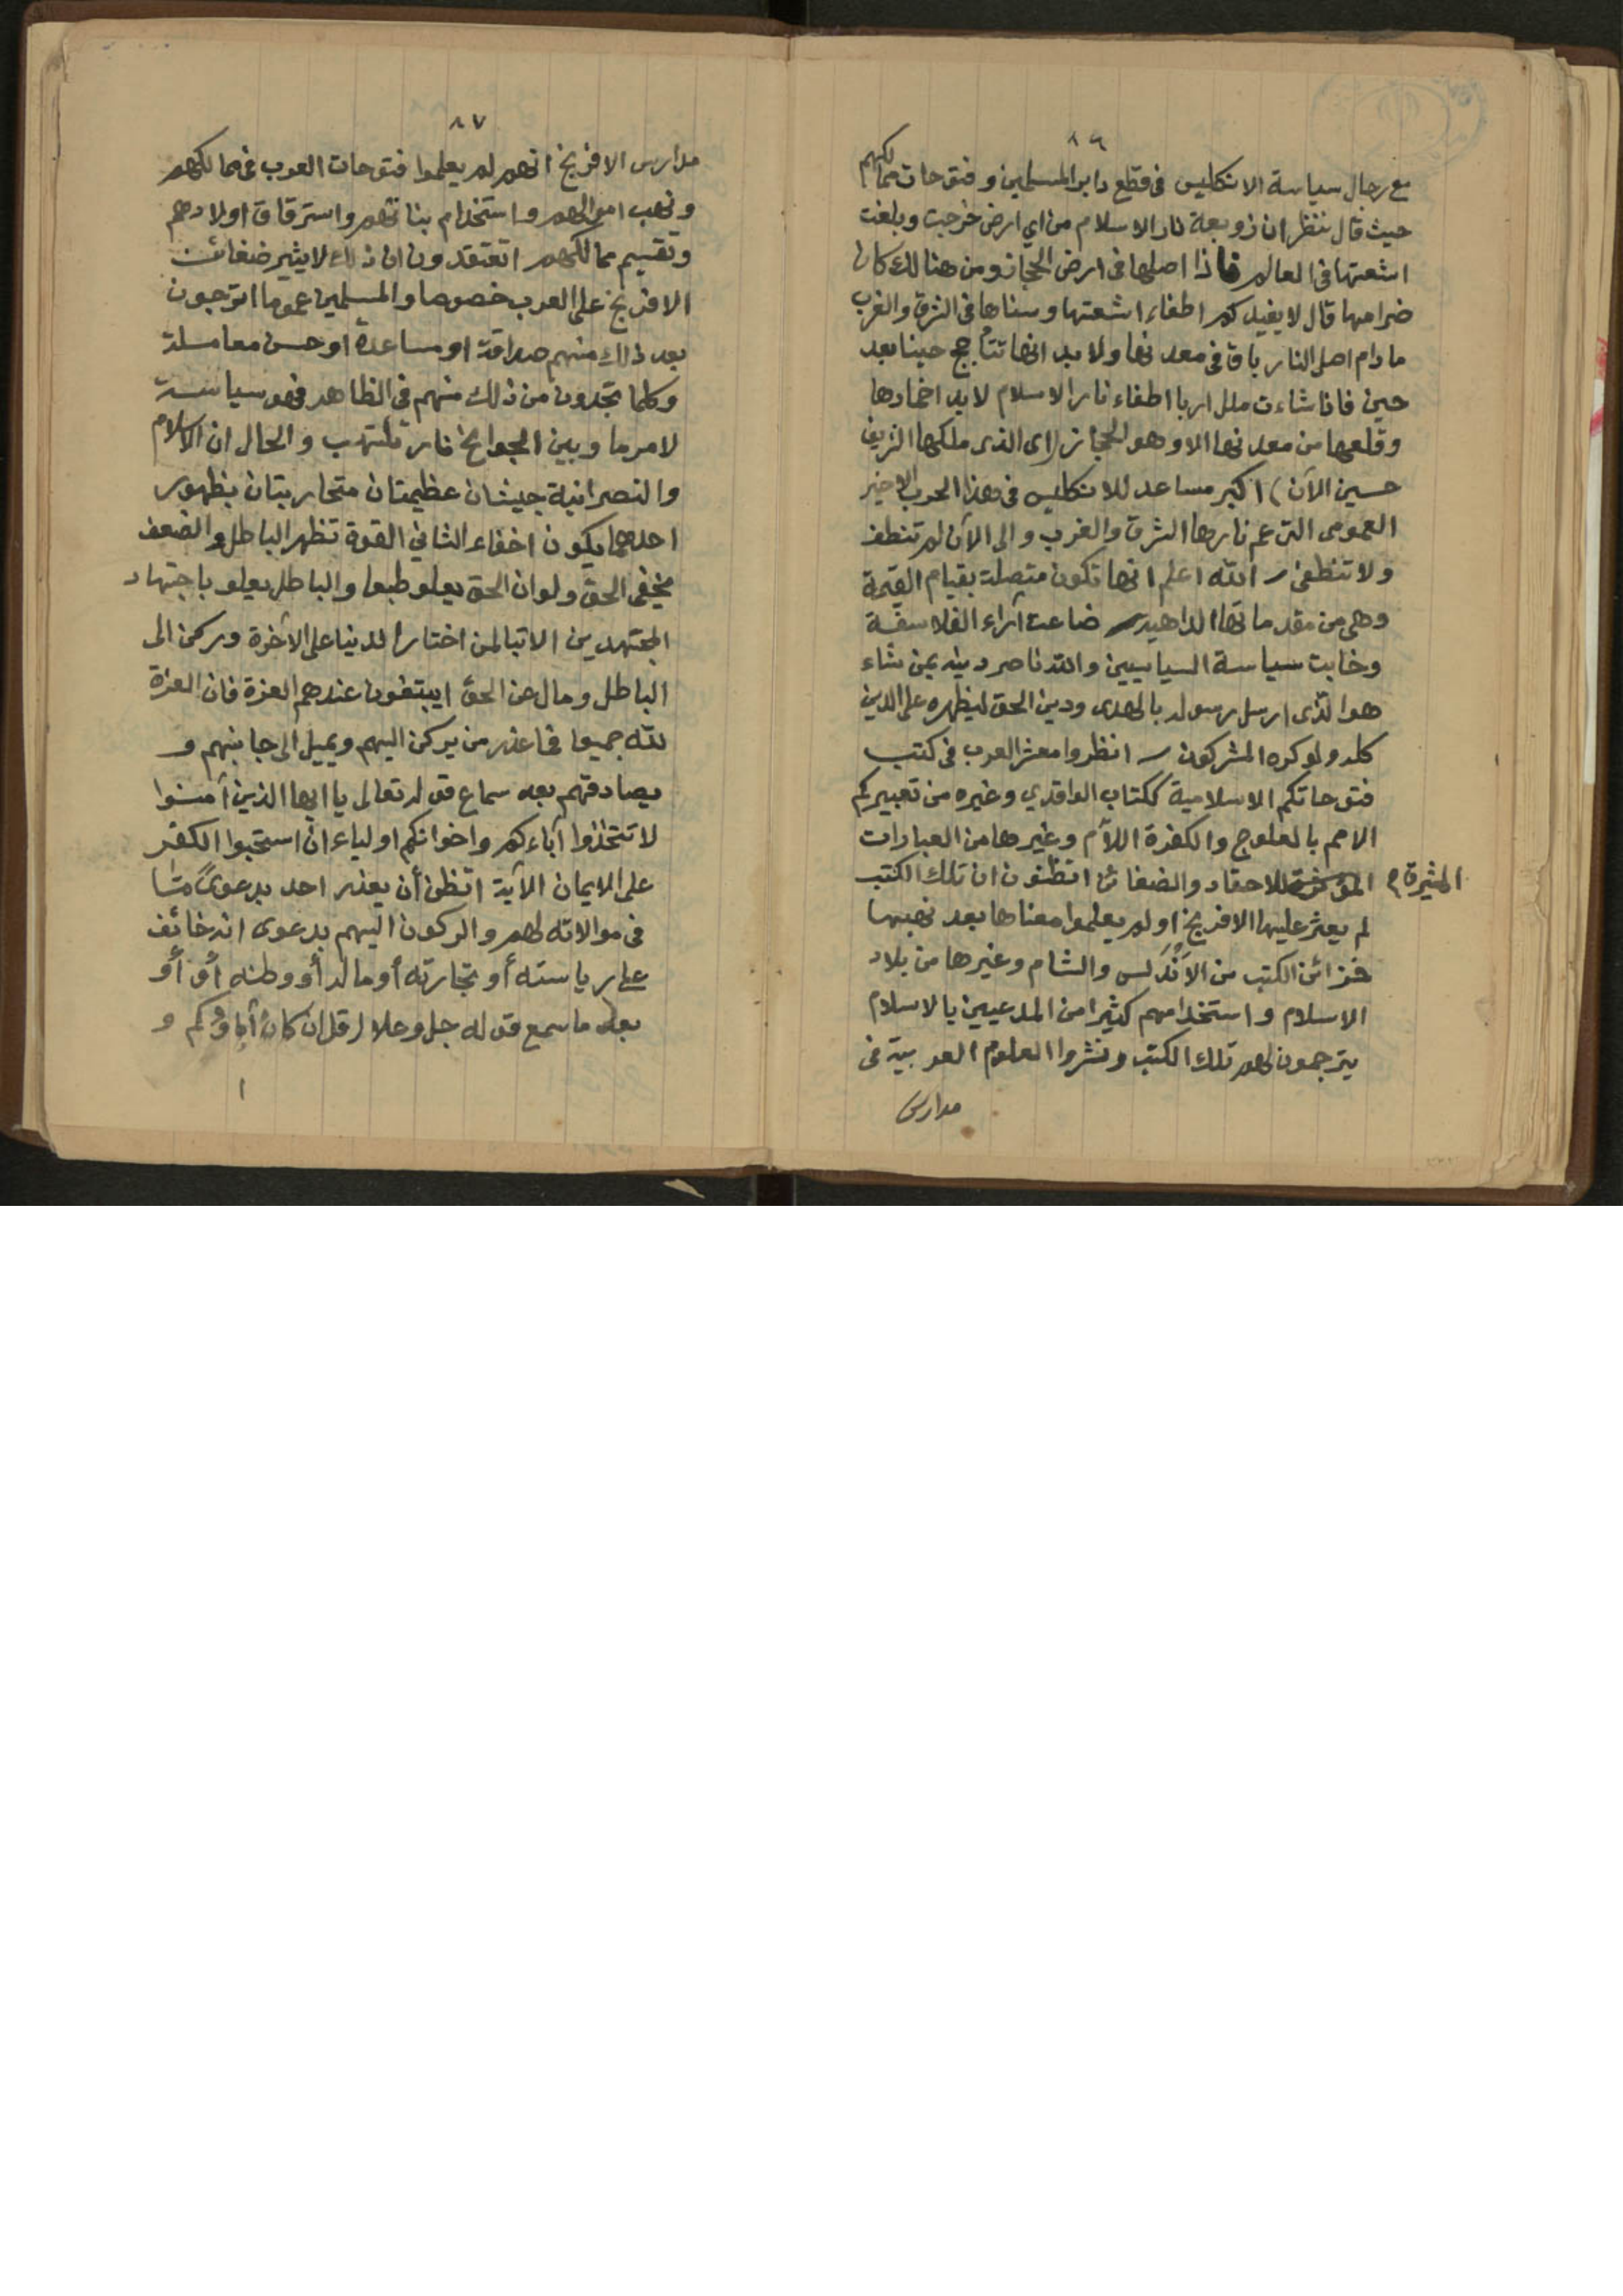 ٨٦
مع رجال سياسة الانكليس فى قطع دابر المسلمين و فتوحات ممالكهم
حيث قال ننظر ان زوبعة نار الاسلام من اي ارض خرجت وبلغت
اشعتها فى العالم فاذا اصلها فى ارض الحجاز ومن هنالك كان
ضرامها قال لا يفيدكم اطفاء اشعتها وسناها فى الشرق والغرب
ما دام اصل النار باق فى معدنها ولا بد انها تتأجج حينا بعد
حين فاذا شاءت ملل اربا اطفاء نار الاسلام لا بد اخمادها
وقلعها من معدنها الا وهو الحجاز (اى الذى ملكها الشريف
حسين الآن) اكبر مساعد للانكليس فى هذا الحرب الاخير
العمومى التى عم نارها الشرق والغرب والى الآن لم تنطف
ولا تنطفئ الله اعلم انها تكون متصلة بقيام القيمة
وهى من مقدماتها الداهية ضاعت آراء الفلاسفة
وخابت سياسة السياسيين والله ناصر دينه بمن شاء
هو الذى ارسل رسوله بالهدى ودين الحق ليظهره على الدين
كله ولو كره المشركون انظروا معشر العرب فى كتب
فتوحاتكم الاسلامية ككتاب الواقدي وغيره من تعبيركم
الامم بالعلوج والكفرة اللأم وغيرها من العبارات
المثيرة للاحقاد والضغائن اتظنون ان تلك الكتب
لم يعثر عليها الافرنج او لم يعلموا معناها بعد نهبها
خزائن الكتب من الأندلس والشام وغيرها من بلاد
الاسلام و استخدامهم كثيرا من المدعيين بالاسلام
يترجمون لهم تلك الكتب ونشروا العلوم العربية فى
مدارس
٨٧
مدارس الافرنج انهم لم يعلموا فتوحات العرب فى ممالكهم
ونهب اموالهم و استخدام بناتهم واسترقاق اولادهم
وتقسيم ممالكهم اتعتقدون ان ذلك لا يثير ضغائن
الافرنج على العرب خصوصا والمسلمين عموما اترجون
بعد ذلك منهم صداقة او مساعدة او حسن معاملة
وكلما تجدون من ذلك منهم فى الظاهر فهو سياسة
لامر ما وبين الجوانح نار تلتهب والحال ان الاسلام
والنصرانية جيشان عظيمتان متحاربتان بظهور
احدهما يكون اخفاء الثاني القوة تظهر الباطل والضعف
يخفى الحق ولو ان الحق يعلو طبعا والباطل يعلو باجتهاد
المجتهدين الا تبا لمن اختار الدنيا على الآخرة وركن الى
الباطل ومال عن الحق ايبتغون عندهم العزة فان العزة
لله جميعا فما عذر من يركن اليهم ويميل الى جانبهم و
يصادقهم بعد سماع قوله تعالى يا ايها الذين آمنوا
لا تتخذوا آباءكم واخوانكم اولياء ان استحبوا الكفر
على الايمان الآية اتظن أن يعذر احد بدعوىً متا
فى موالاته لهم والركون اليهم بدعوى انه خائف
على رياسته أو تجارته أو ماله أو وطنه أو أو
بعد ما سمع قوله جل وعلا (قل ان كان أباؤكم و